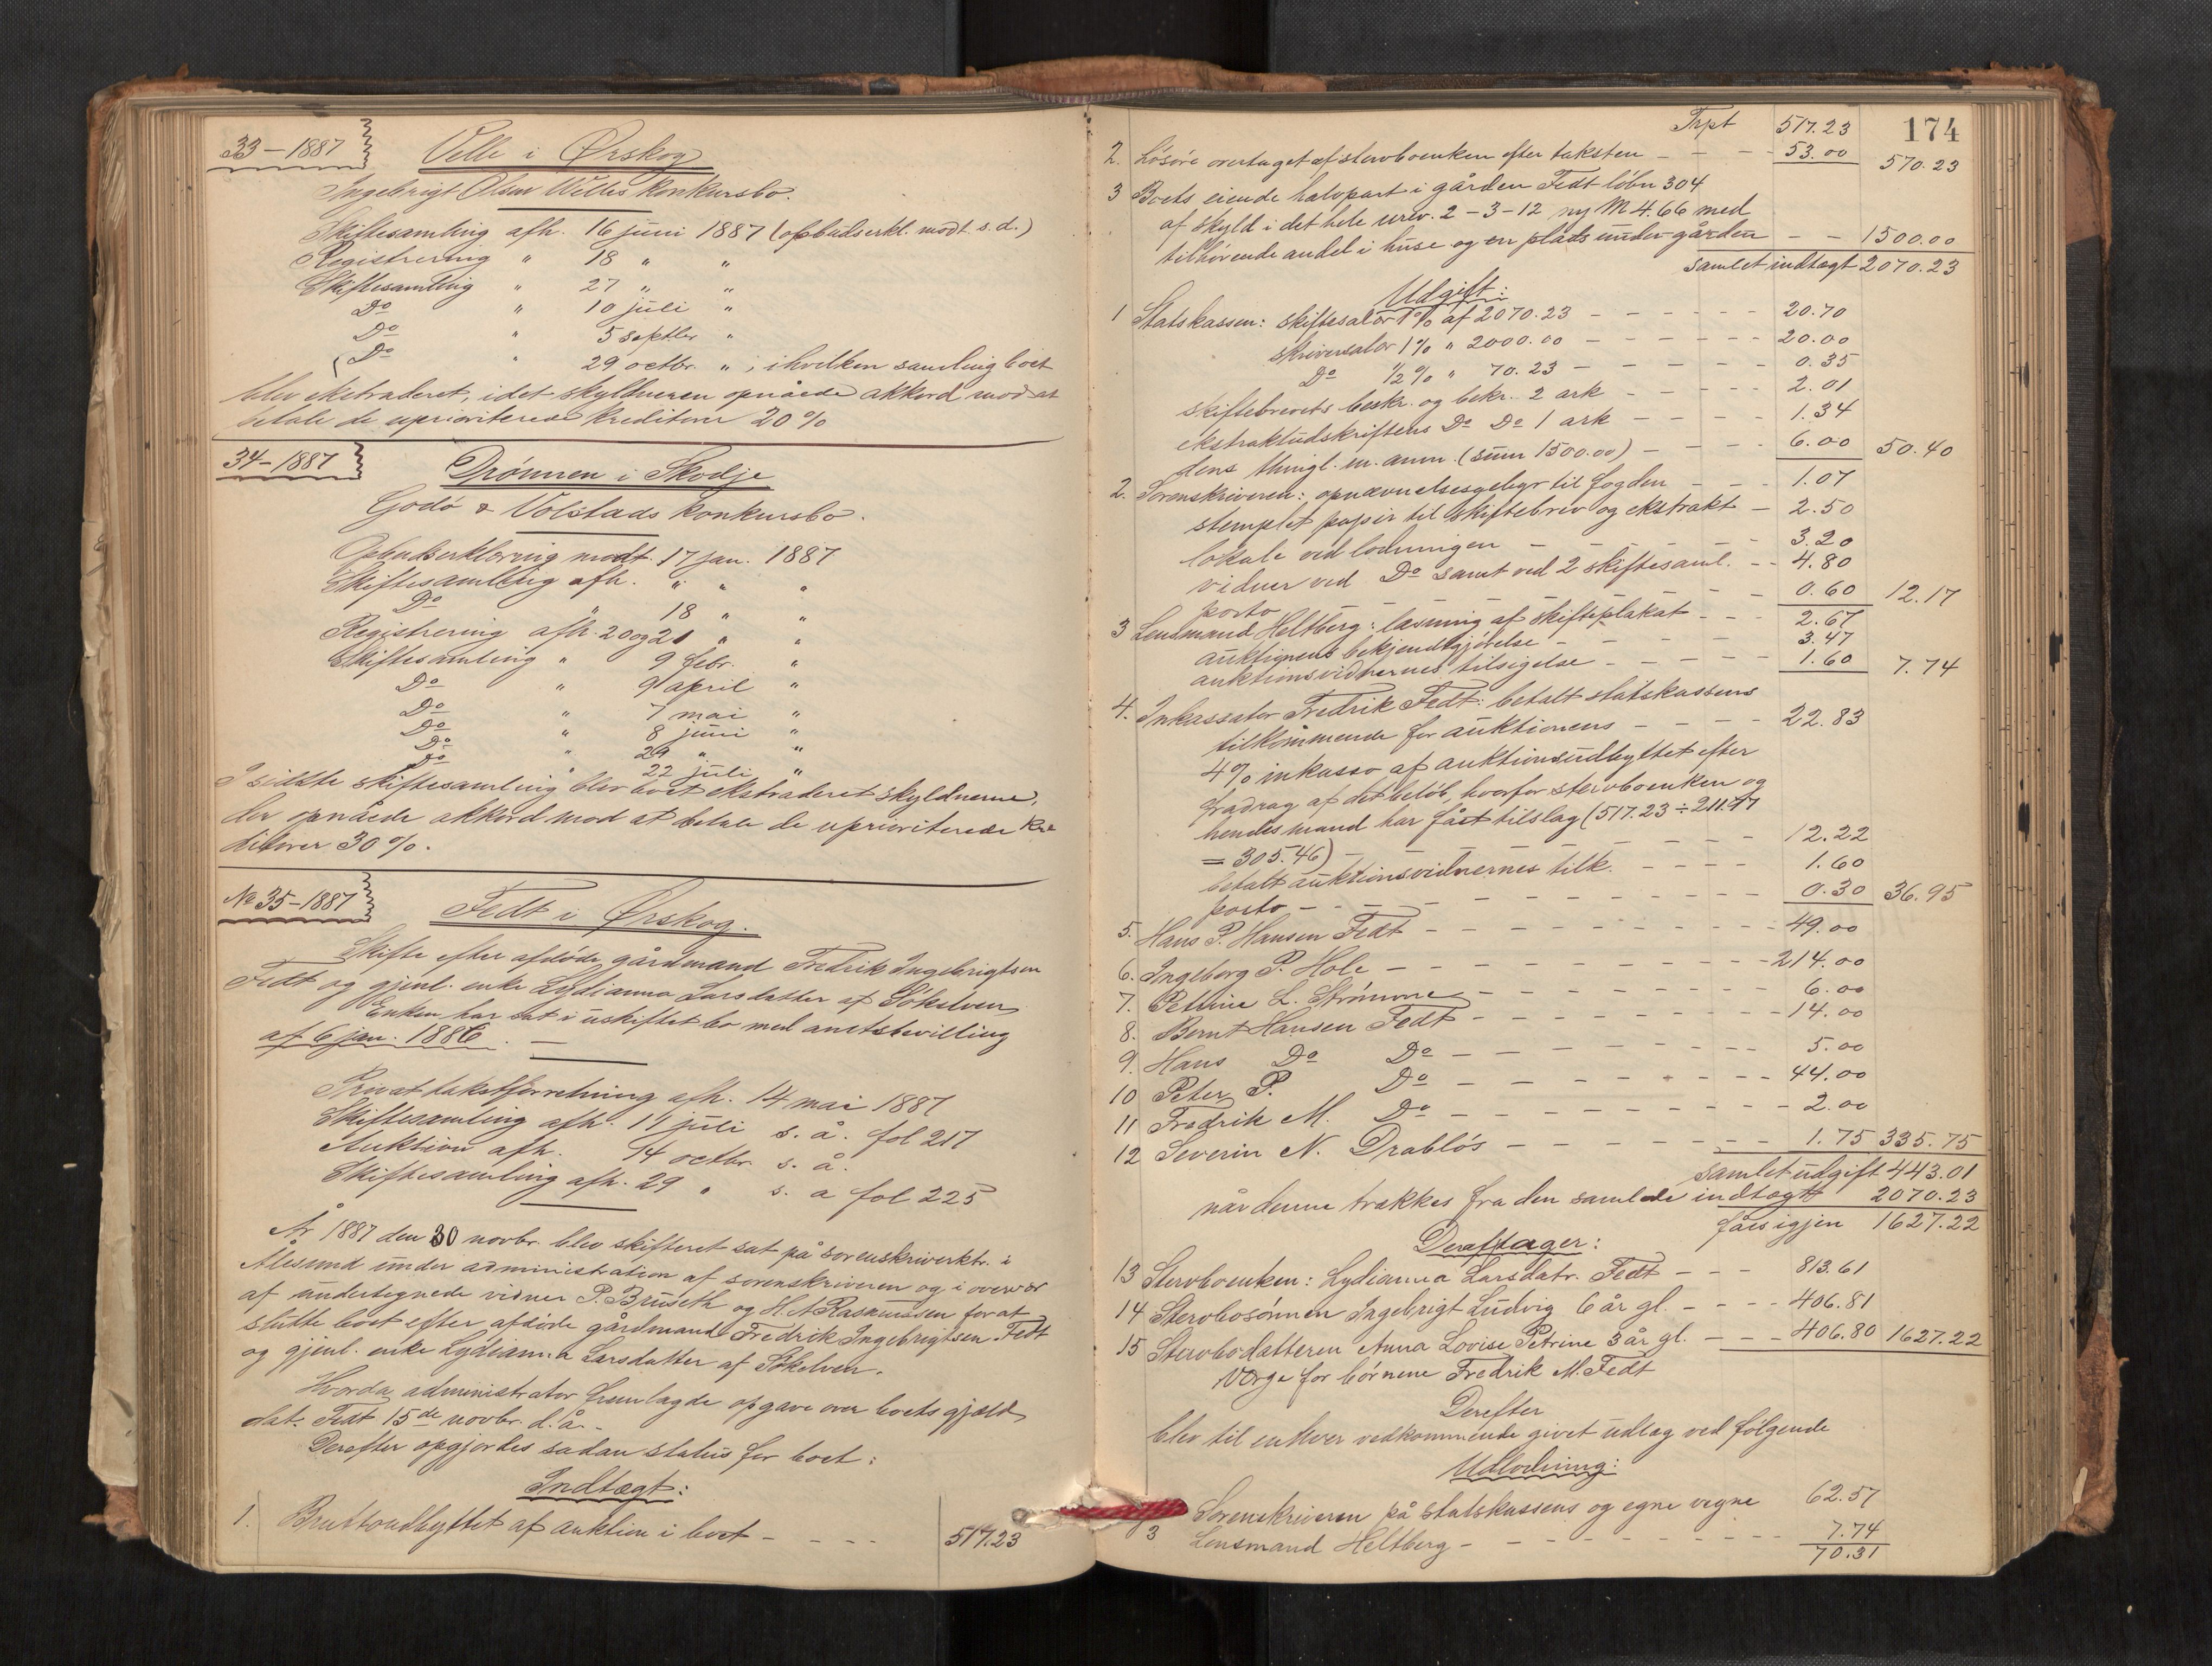 33-1887
Velle i Ørskog
Ingebrigt Olsen Velles konkursbo.
Skiftesamling afh. 16 juni 1887 (opbudserkl. modt. s. d.)
Registrering " 18 " "
Skiftesamling " 27 " "
Do " 10 juli "
Do " 5 septbr "
Do " 29 octbr. " , i hvilken samling boet
blev ekstraderet, idet skyldneren opnåede akkord mod at
betale de uprioriterede kreditorer 20 %
34-1887
Drønnen i Skodje
Godø & Volstads konkursbo.
Opbudserklæring modt. 17 jan. 1887
Skiftesamling afh. " " "
Do " 18 " "
Registrering afh. 20 og 21 " "
Skiftesamling " 9 febr. "
Do " 9 april "
Do " 7 mai "
Do " 8 juni "
Do " 29 " "
Do " 22 juli "
I sidste skiftesamling blev boet ekstraderet skyldnerne,
der opnåede akkord mod at betale de uprioriterede kre
ditorer 30 %.
No 35-1887
Fedt i Ørskog.
Skifte efter afdøde gårdmand Fredrik Ingebrigtsen
Fedt og gjenl. enke Lydianna Larsdatter af Søkelven
Enken har sat i uskiftet bo med amtsbevilling
af 6 jan. 1886.
Privat takstforretning afh. 14 mai 1887
Skiftesamling afh. 11 juli s. å. fol 217
Auktion afh. 14 octbr. s. å.
Skiftesamling afh. 29 " s. a fol 225
År 1887 den 30 novbr. blev skifteret sat på sorenskriverktr. i
Ålesund under administration af sorenskriveren og i overvær
af undertegnede vidner P. Bruseth og H. A Rasmussen for at
slutte boet efter afdøde gårdmand Fredrik Ingebrigtsen Fedt
og gjenl. enke Lydianna Larsdatter af Søkelven.
Hvorda administrator fremlagde opgave over boets gjæld
dat. Fedt 15de novbr. d. å.
Derefter opgjordes sådan status for boet:
Indtægt:
1. Bruttoudbyttet af auktion i boet - - - - 517.23
174
Trpt 517.23
2. Løsøre overtaget af stervboenken efter taksten - - - 53.00 570.23
3 Boets eiende halvpart i gården Fedt løbn 304
af skyld i det hele urev. 2-3-12 ny M 4.66 med
tilhørende andel i huse og en plads under gården - - 1500.00
samlet indtægt 2070.23
Udgift:
1 Statskassen: skiftesalær 1% af 2070.23 - - - - - 20.70
skriversalær 1% " 2000.00 - - - - - - 20.00
Do ½% " 70.23 - - - - - 0.35
skiftebrevets beskr. og bekr. 2 ark - - - - 2.01
ekstraktudskriftens Do Do 1 ark - - - - 1.34
dens thingl. m. anm. (sum 1500.00) - - - - 6.00 50.40
2. Sorenskriveren: opnævnelsesgebyr til fogden - - - 1.07
stemplet papir til skiftebrev og ekstrakt - 2.50
lokale ved lodningen - - - - - 3.20
vidner ved Do samt ved 2 skiftesaml. - - 4.80
porto - - - - - - - - 0.60 12.17
3 Lensmand Heltberg: læsning af skifteplakat - - - 2.67
auktionens bekjendtgjørelse - - - - - 3.47
auktionsvidnernes tilsigelse - - - - - 1.60 7.74
4. Inkassator Fredrik Fedt: betalt statskassens
tilkommende for auktionens - - - - 22.83
4% inkasso af auktionsudbyttet efter
fradrag af det beløb, hvorfor stervboenken og
hendes mand har fået tilslag (517.23 ÷ 211.77
= 305.46) - - - - - - - 12.22
betalt auktionsvidnernes tilk. - - - - 1.60
porto - - - - - - - - - 0.30 36.95
5. Hans P. Hansen Fedt - - - - - - - - - 49.00
6. Ingeborg P. Hole - - - - - - - - - 214.00
7. Pettrine L. Strømme - - - - - - - - 6.00
8. Bernt Hansen Fedt - - - - - - - - - 14.00
9. Hans Do Do - - - - - - - - 5.00
10 Peter P. Do - - - - - - - - - 44.00
11 Fredrik M. Do - - - - - - - - - 2.00
12 Severin N. Drabløs - - - - - - - - 1.75 335.75
samlet udgift 443.01
når denne trækkes fra den samlede indtægt 2070.23
fåes igjen 1627.22
Deraf tager:
13 Stervboenken: Lydianna Larsdatr. Fedt - - - 813.61
14 Stervbosønnen Ingebrigt Ludvig 6 år gl. - - - - 406.81
15 Stervbodatteren Anna Lovise Petrine 3 år gl. - - - 406.80 1627.22
Værge for børnene Fredrik M. Fedt
Derefter
blev til enhver vedkommende givet udlæg ved følgende
Udlodning:
Sorenskriveren på statskassens og egne vegne 62.57
3 Lensmand Heltberg - - - - - - - - 7.74
70.31